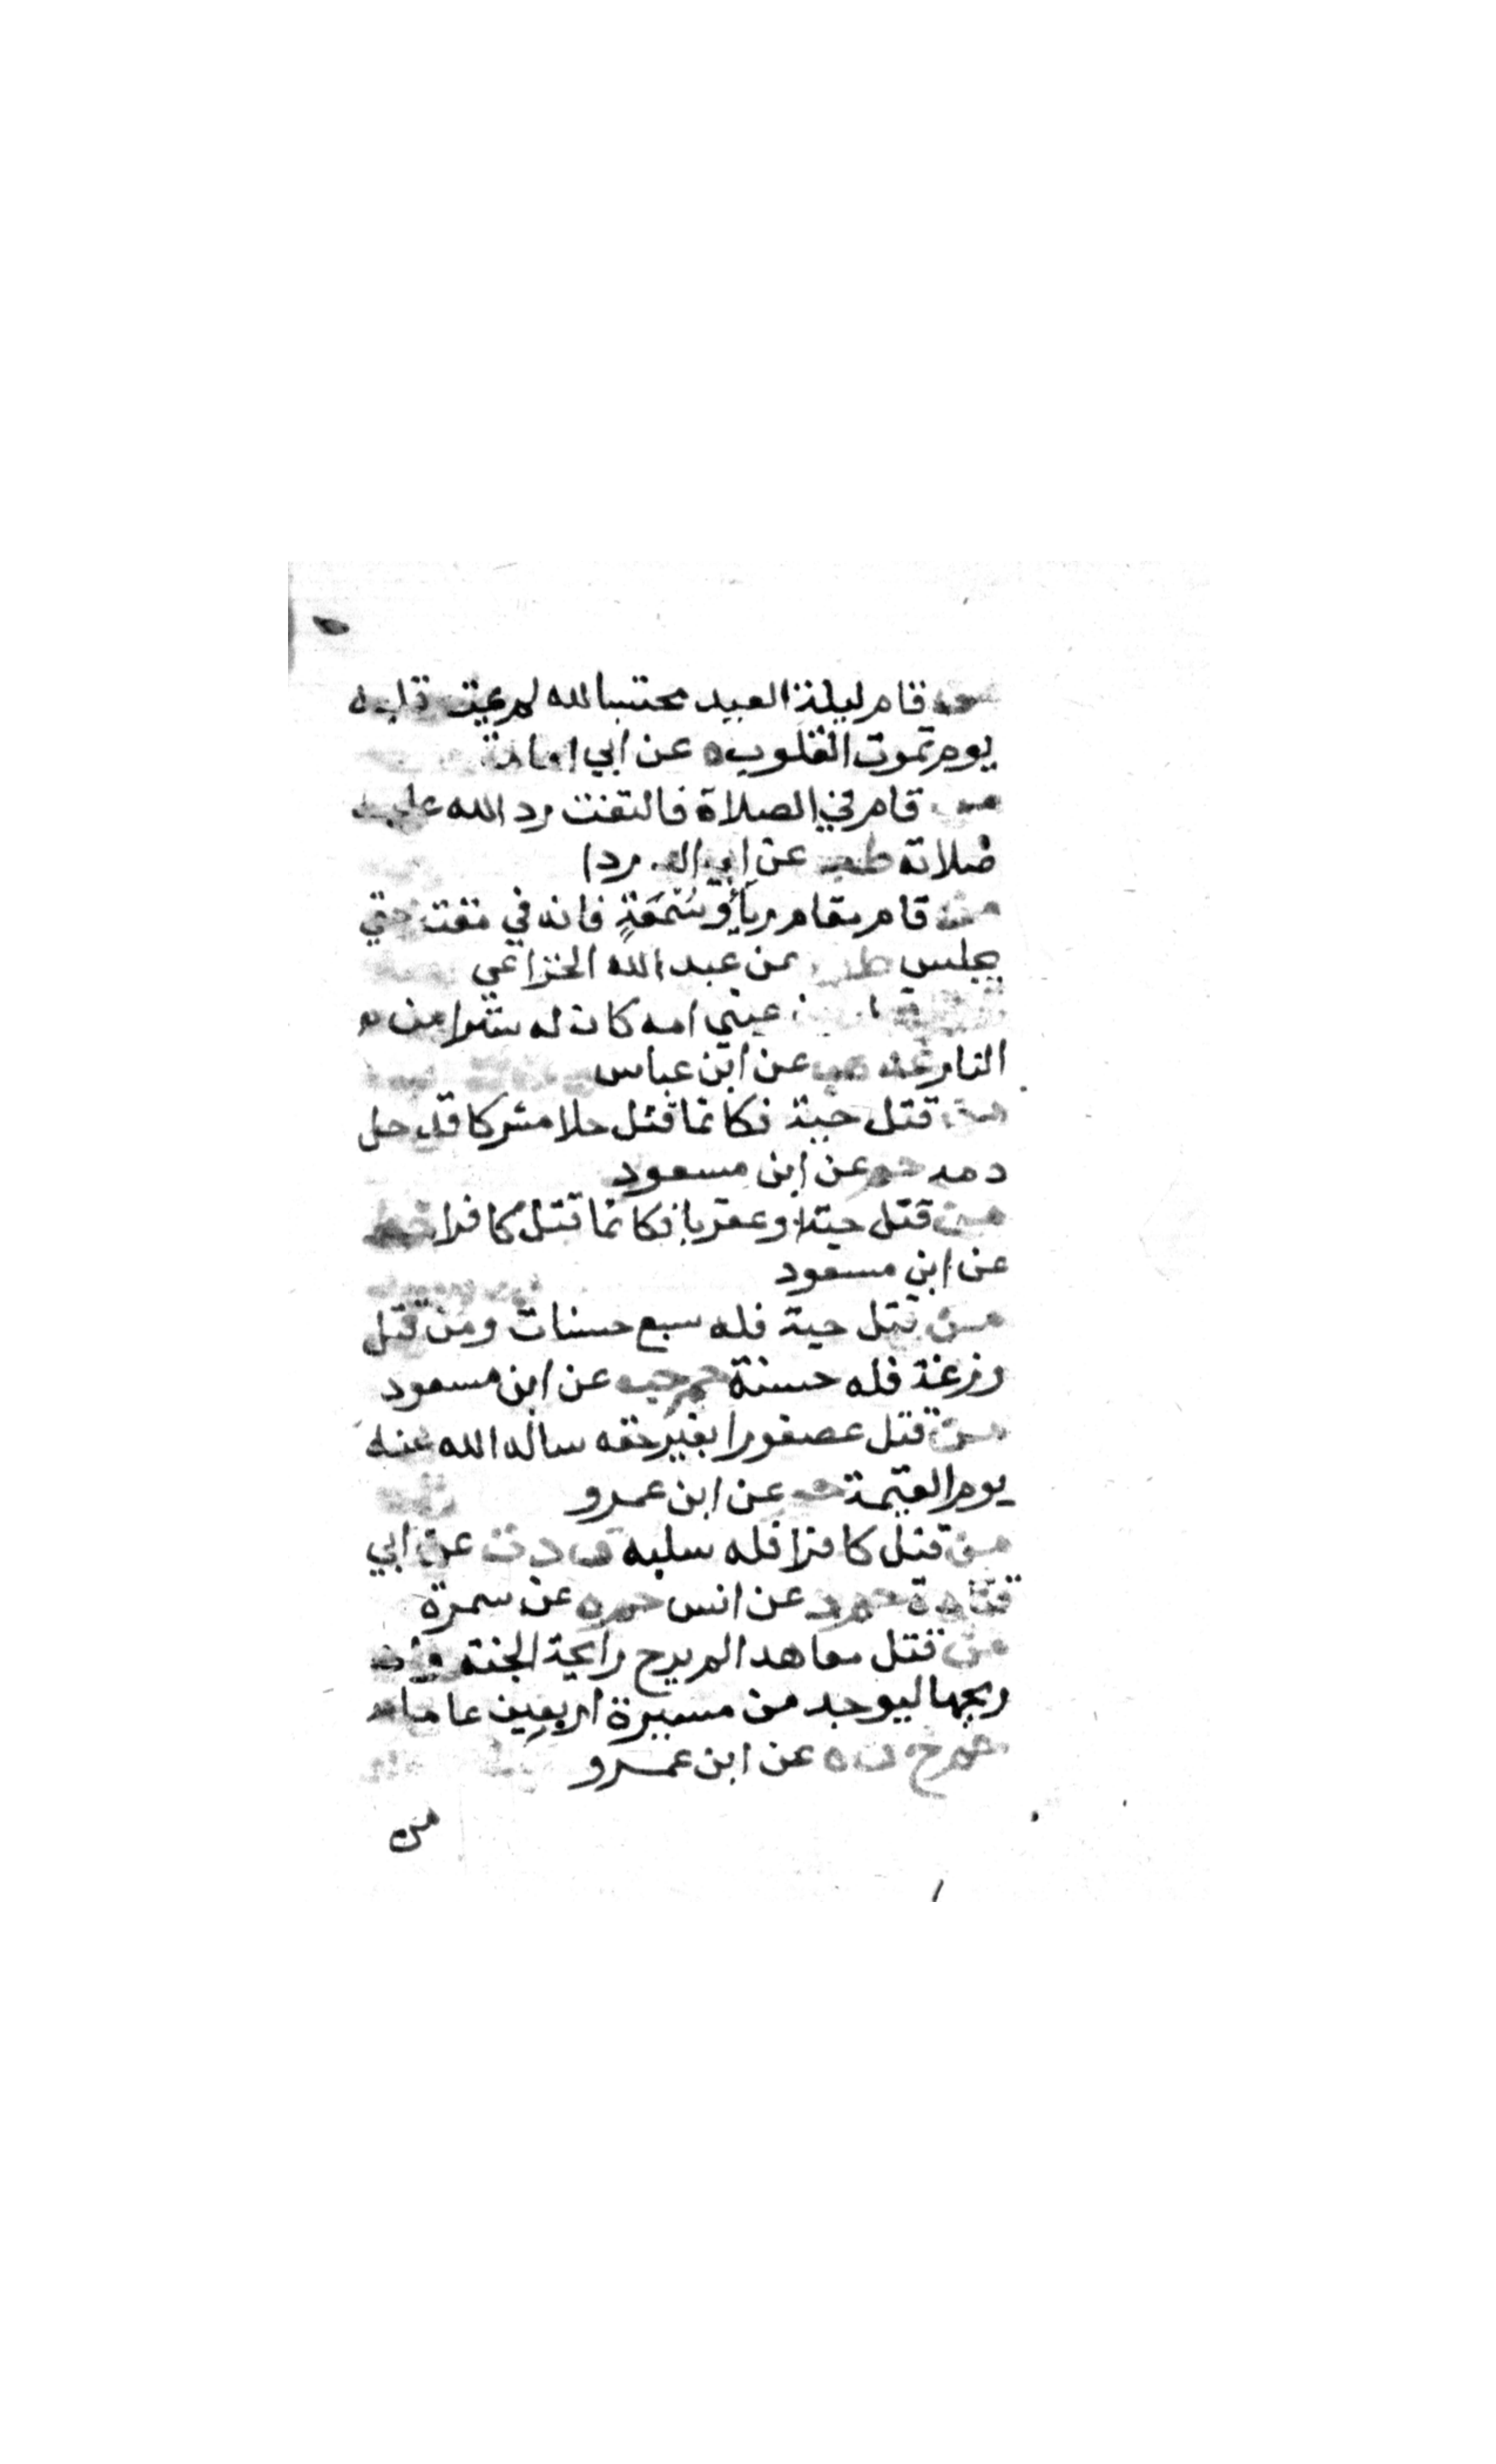 من قام ليلة العيد محتسبا لله لم يمت قلبه
يوم تموت القلوب ه عن ابي امامة
من قام في الصلاة فالتفت رد الله عليه
صلاته طب عن ابي الدردا
من قام مقام رياً وسُمْعَةٍ فانه في مقت حتي
يجلس طب عن عبد الله الخزاعي
عيني امه كان له سترا من
النار عد هب عن ابن عباس
من قتل حية فكانما قتل رجلا مشركا قد حل
دمه حم عن ابن مسعود
من قتل حية او عقربا فكانما قتل كافرا خط
عن ابن مسعود
من قتل حية فله سبع حسنات ومن قتل
وزغة فله حسنة حم حب عن ابن مسعود
من قتل عصفورا بغير حقه ساله الله عنه
يوم القيمة حم عن ابن عمرو
من قتل كافرا فله سلبه ق د ت عن ابي
قتادة حم د عن انس حم ه عن سمرة
من قتل معاهدا لم يرح رايحة الجنة وان
ريحها ليوجد من مسيرة اربعين عاما
حم خ ن ه عن ابن عمرو
من